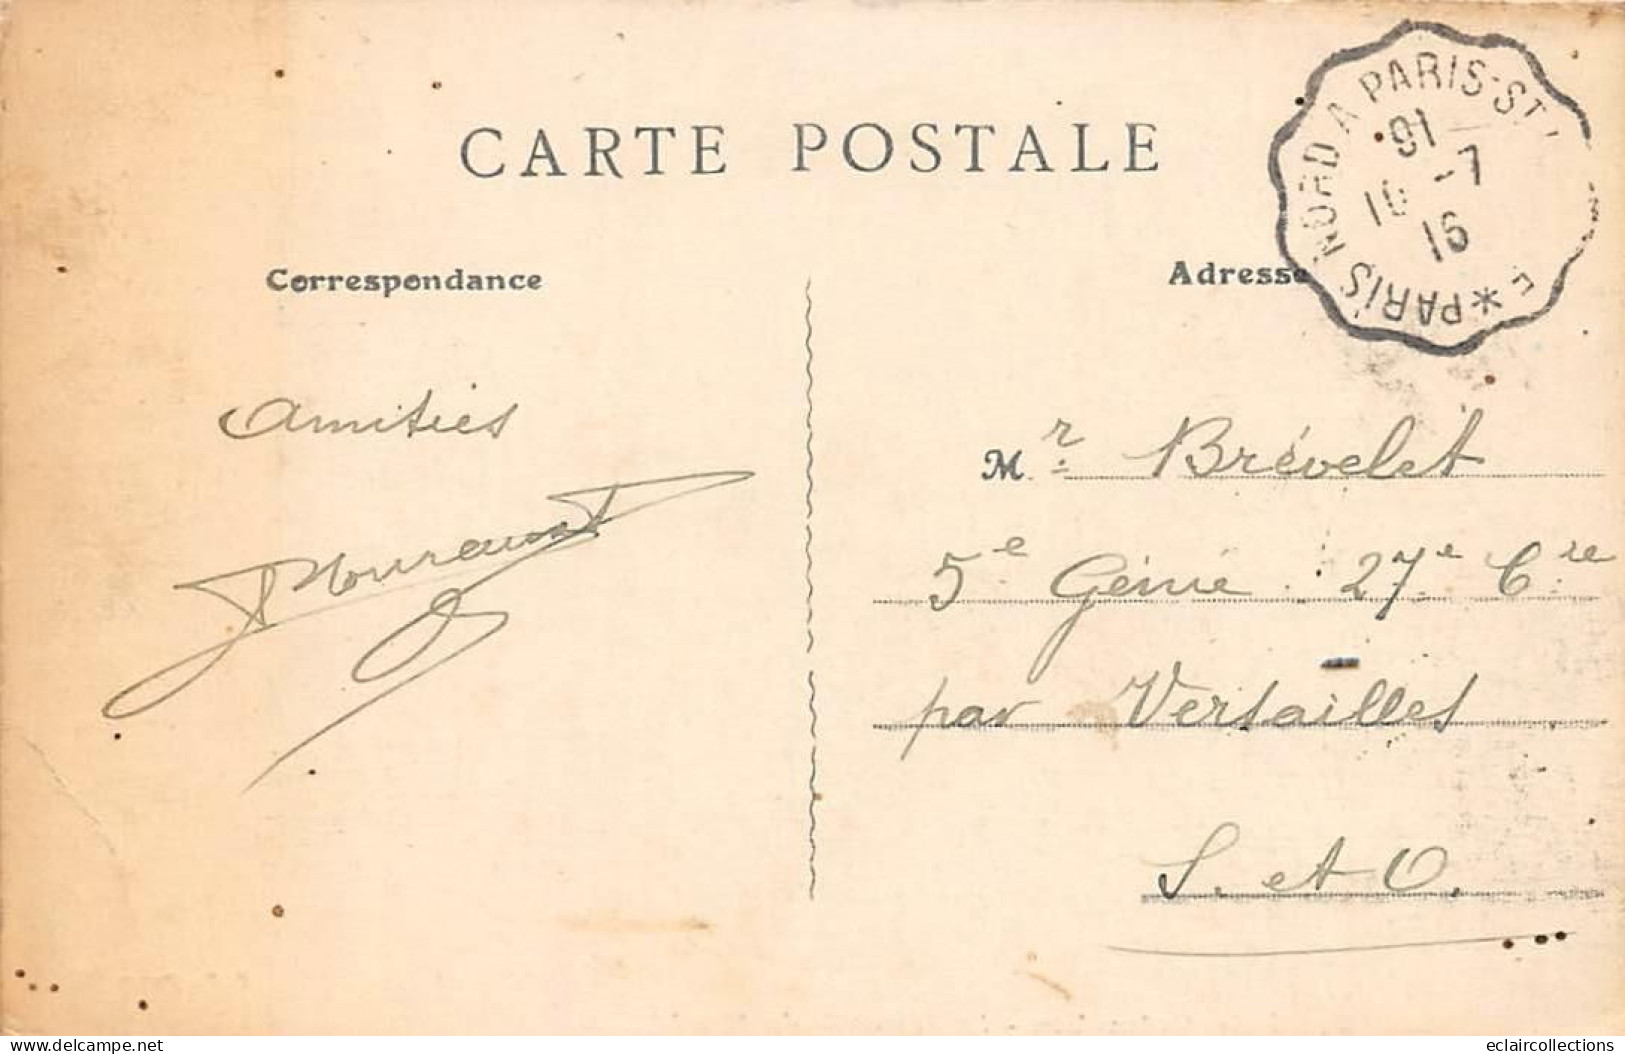 CARTE POSTALE
PARIS NORD A PARIS-St L
16
10 -7
16
Correspondance
Adresse
Amitiés
Mr Brévelet
5e Génie 27e Cie
par Versailles
S. et O.
eclaircollections